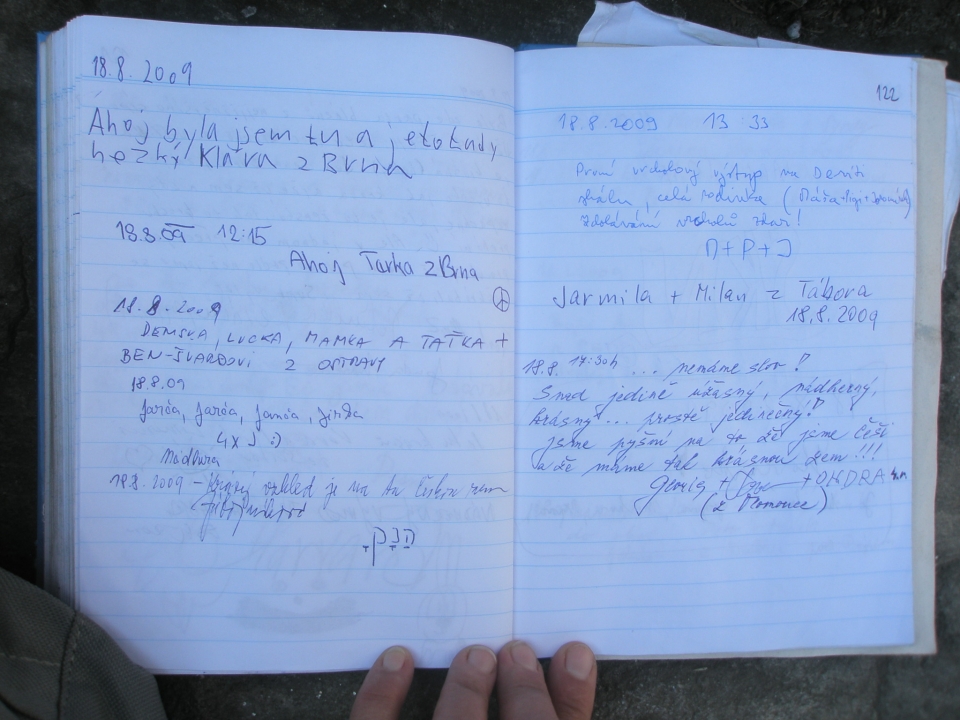 18.8. 2009
Ahoj byla jsem tu a je to tady
hezký Klára z Brna
18.8.09 12:15
Ahoj Terka z Brna
18.8.2009
LUCKA, MAMKA A TAŤKA +
Z OSTRAVY
18.8.09
Jarča, Jarča, Janča, Jinďa
4x J :)
Nádhera
18.8.2009 – Krásný vzhled je na tu Českou zem
122
18.8.2009 13:33
První vrcholový výstup na Devíti
skálu, celá rodinka
Zdolávání vrcholů zdar!
M+P+J
Jarmila + Milan z Tábora
18.8.2009
18.8. 17:30h ... nemáme slov!
Snad jedině úžasný, nádherný,
krásný... prostě jedinečný!
jsme pyšní na to, že jsme Češi
a že máme tak krásnou zem!!!
+ ONDRA
(z Olomouce)